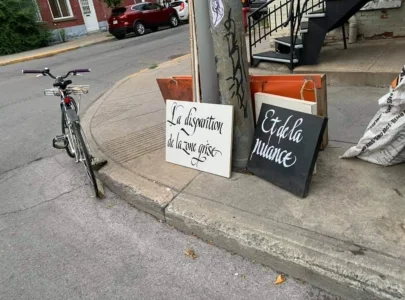 La disparition
de la zone grise
Et de la
nuance